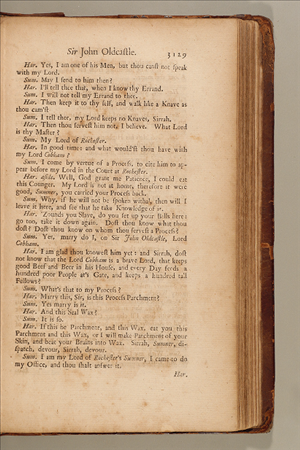 Sir John Oldcastle. 3129
Har. Yes, I am one of his Men, but thou canst not speak
with my Lord.
Sum. May I send to him then?
Har. I'll tell thee that, when I know thy Errand.
Sum. I will not tell my Errand to thee.
Har. Then keep it to thy self, and walk like a Knave as
thou cam'st.
Sum. I tell thee, my Lord keeps no Knaves, Sirrah.
Har. Then thou servest him not, I believe. What Lord
is thy Master?
Sum. My Lord of Rochester.
Har. In good time: and what would'st thou have with
my Lord Cobham?
Sum. I come by vertue of a Process, to cite him to ap-
pear before my Lord in the Court at Rochester.
Har. aside. Well, God grant me Patience, I could eat
this Counger. My Lord is not at home, therefore it were
good, Sumner, you carried your Process back.
Sum. Why, if he will not be spoken withal, then will I
leave it here, and see that he take Knowledge of it.
Har. 'Zounds you Slave, do you set up your bills here;
go too, take it down again. Dost thou know what thou
dost? Dost thou know on whom thou servest a Process?
Sum. Yes, marry do I, on Sir John Oldcastle, Lord
Cobham.
Har. I am glad thou knowest him yet: and Sirrah, dost
not know that the Lord Cobham is a brave Lord, that keeps
good Beef and Beer in his House, and every Day feeds a
hundred poor People at's Gate, and keeps a hundred tall
Fellows?
Sum. What's that to my Process?
Har. Marry this, Sir, is this Process Parchment?
Sum. Yes marry is it.
Har. And this Seal Wax?
Sum. It is so.
Har. If this be Parchment, and this Wax, eat you this
Parchment and this Wax, or I will make Parchment of your
Skin, and beat your Brains into Wax. Sirrah, Sumner, di-
spatch, devour, Sirrah, devour.
Sum. I am my Lord of Rochester's Sumner, I came to do
my Office, and thou shalt answer it.
Har.